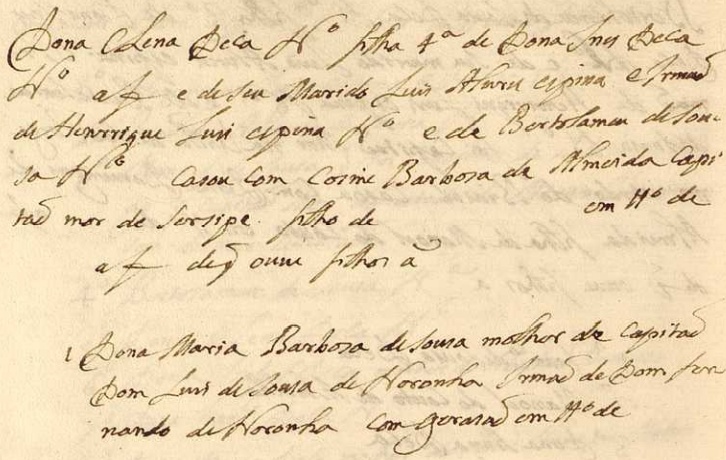 Dona Elena Deça Nº filha 4ª de Dona Ines Deça
Nº a f e de seu Marido Luis espina e Irmaã
de Henrrique Luis espina Nº e de Bertolameu de Sou-
sa Nº Casou com Cosme Barbosa de Almeida Capi
taõ mor de Sersipe. filho de em Nº de
a f de q̃ ouue filhos ã
1 Dona Maria Barbosa de Sousa molher do Capitaõ
Dom Luis de Sousa de Noronha Irmaõ de Dom fer
nando de Noronha Com gerasaõ em Nº de